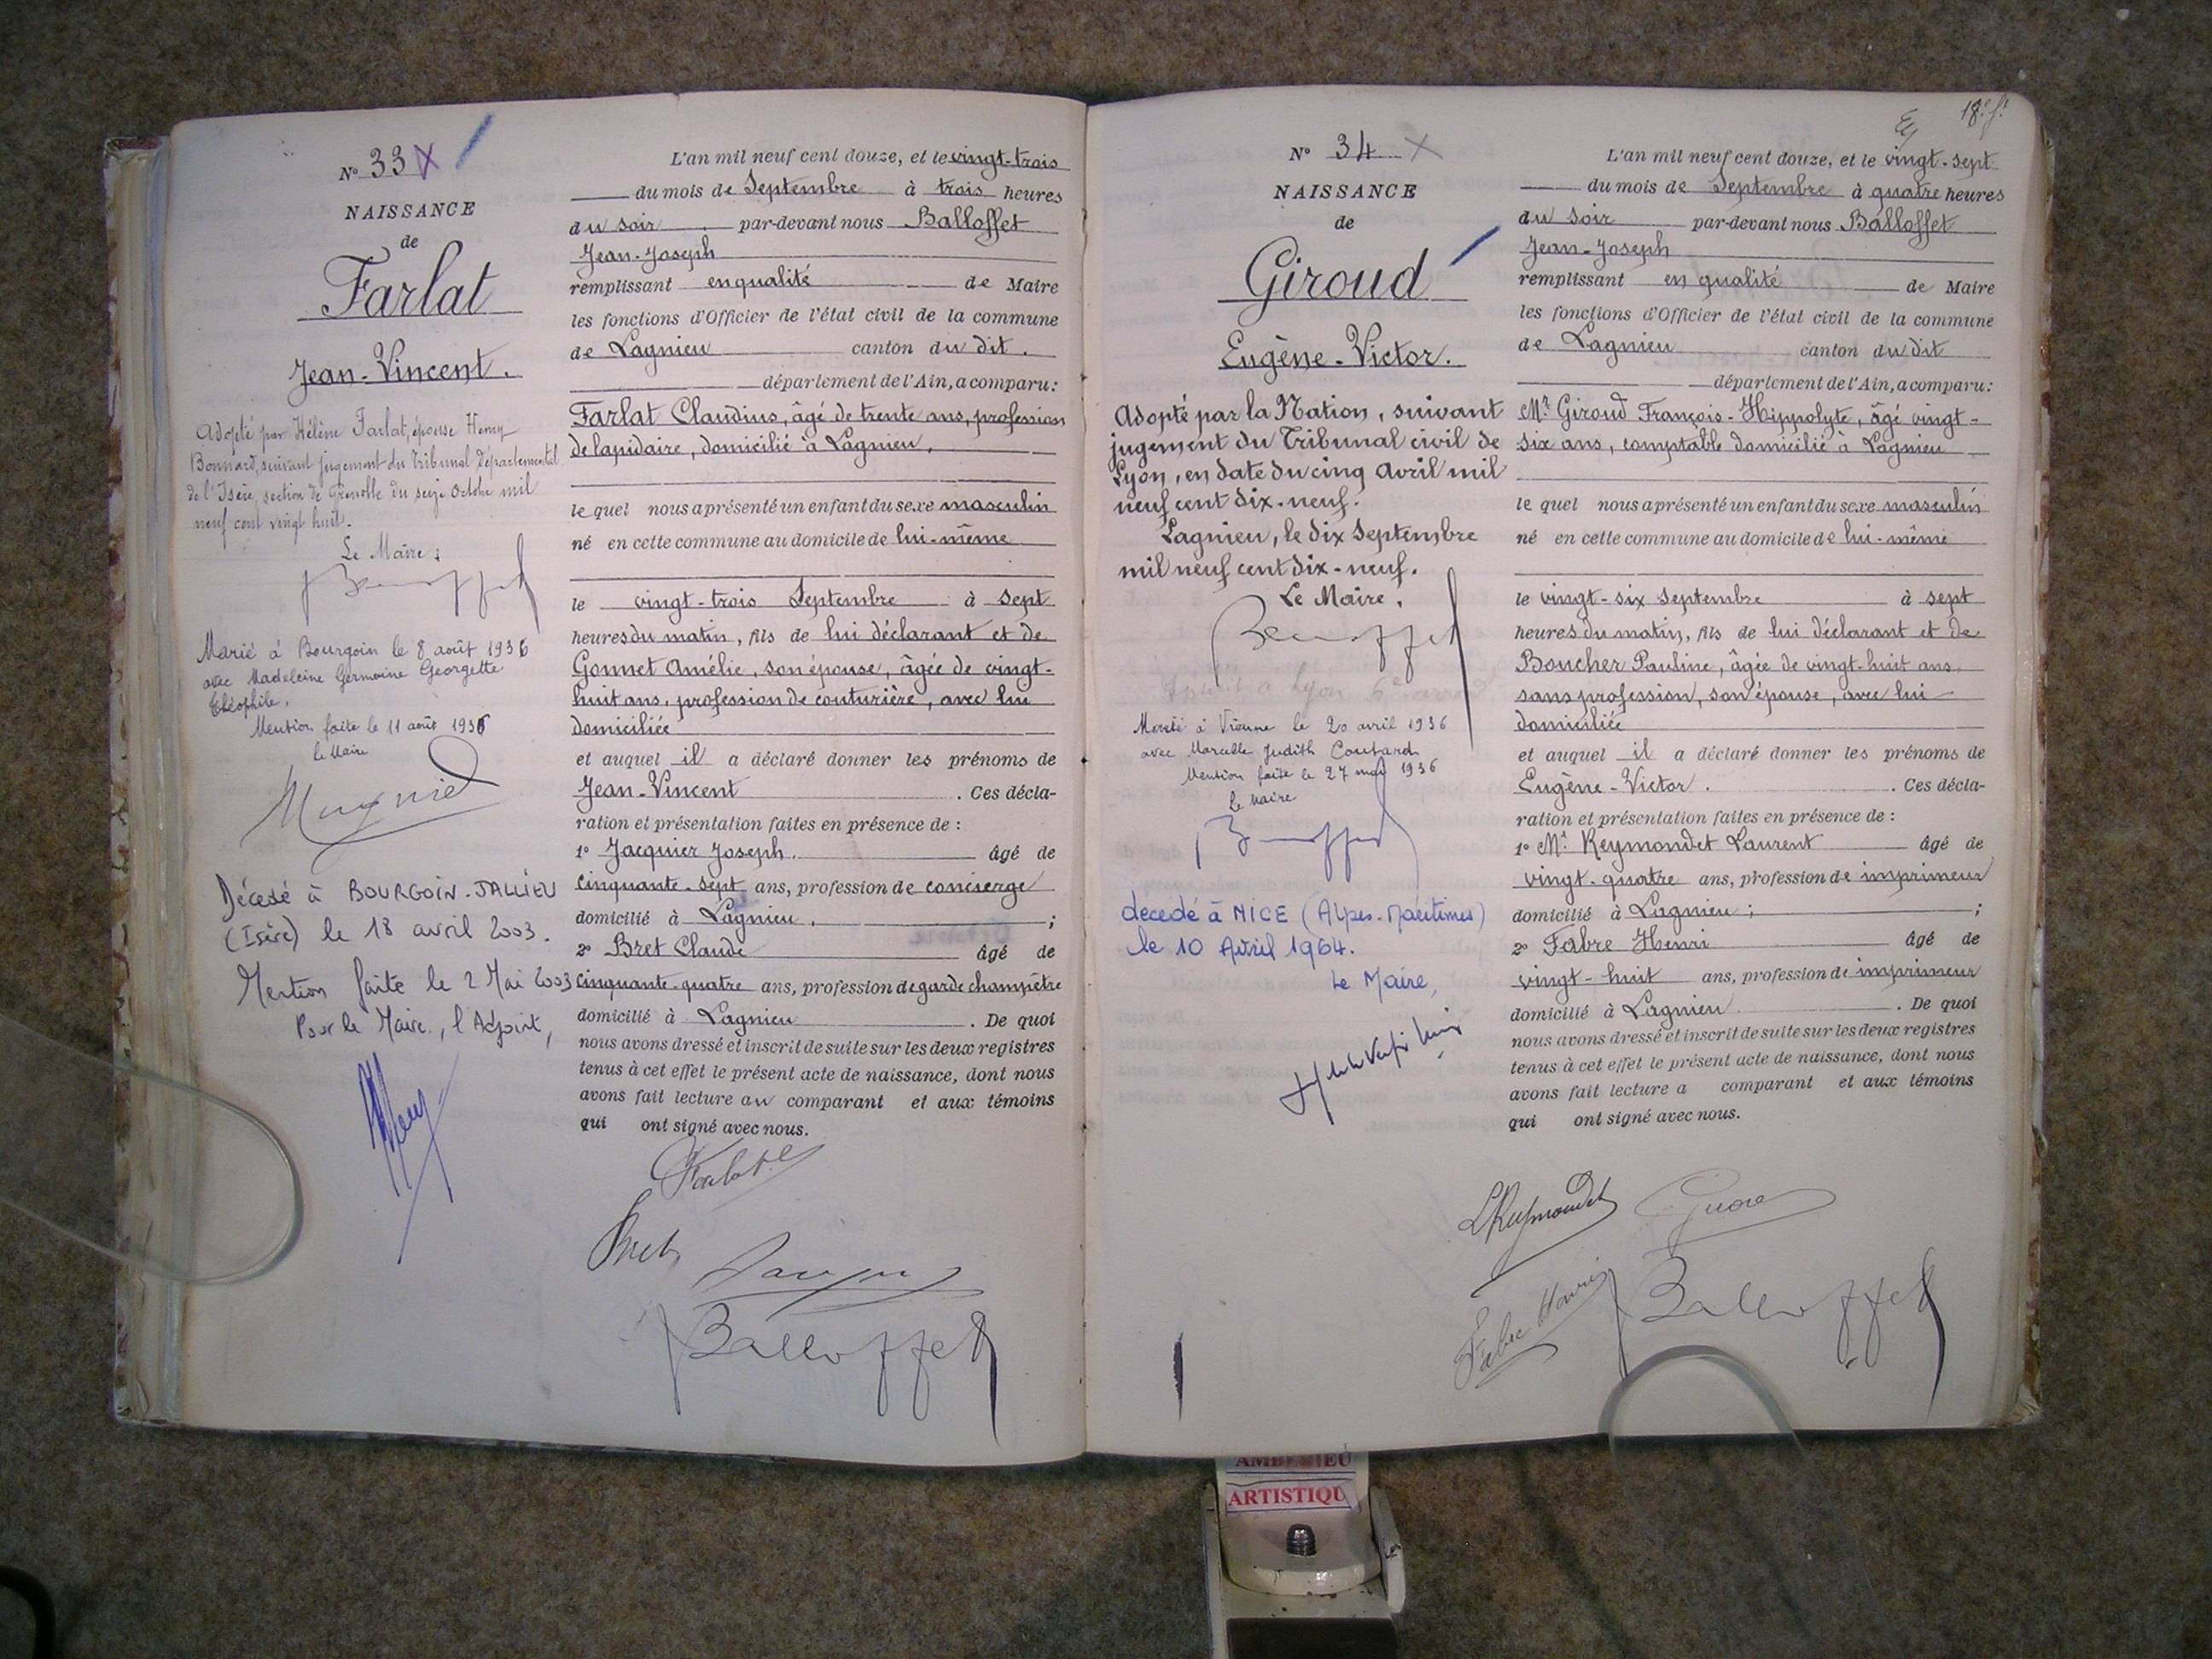 N° 33
NAISSANCE
de
Farlat
Jean-Vincent.
Adopté par Hélène Farlat, épouse Henry
Bonnard, suivant jugement du Tribunal Départemental
de l'Isère, section de Grenoble du seize Octobre mil
neuf cent vingt huit.
Le Maire :
Marié à Bourgoin le 8 août 1936
avec Madeleine Germaine Georgette
Théophile.
Mention faite le 11 août 1936
le Maire
Décédé à BOURGOIN-JALLIEU
(Isère) le 18 avril 2003.
Mention faite le 2 Mai 2003
Pour le Maire, l'Adjoint,
L'an mil neuf cent douze, et le vingt-trois
du mois de Septembre à trois heures
du soir par-devant nous Balloffet
Jean-Joseph
remplissant en qualité de Maire
les fonctions d'Officier de l'état civil de la commune
de Lagnieu canton du dit.
département de l'Ain, a comparu:
Farlat Claudius, âgé de trente ans, profession
de lapidaire, domicilié à Lagnieu.
le quel nous a présenté un enfant du sexe masculin
né en cette commune au domicile de lui-même
le vingt-trois Septembre à sept
heures du matin, fils de lui déclarant et de
Gonnet Amélie, son épouse, âgée de vingt-
huit ans, profession de couturière, avec lui
domiciliée
et auquel il a déclaré donner les prénoms de
Jean-Vincent. Ces décla-
ration et présentation faites en présence de :
1° Jacquier Joseph. âgé de
cinquante-sept ans, profession de concierge
domicilié à Lagnieu. ;
2° Bret Claude âgé de
cinquante-quatre ans, profession de garde champêtre
domicilié à Lagnieu. De quoi
nous avons dressé et inscrit de suite sur les deux registres
tenus à cet effet le présent acte de naissance, dont nous
avons fait lecture au comparant et aux témoins
qui ont signé avec nous.
Bret
Balloffet
18e ft
N° 34
NAISSANCE
de
Giroud
Eugène-Victor.
Adopté par la Nation, suivant
jugement du Tribunal civil de
Lyon, en date du cinq Avril mil
neuf cent dix-neuf.
Lagnieu, le dix Septembre
mil neuf cent dix-neuf.
Le Maire,
Marié à Vienne le 20 avril 1936
avec Marcelle Judith Coutard
Mention faite le 27 mai 1936
le Maire
décédé à NICE (Alpes-Maritimes)
le 10 Avril 1964.
Le Maire,
L'an mil neuf cent douze, et le vingt-sept
du mois de Septembre à quatre heures
du soir par-devant nous Balloffet
Jean-Joseph
remplissant en qualité de Maire
les fonctions d'Officier de l'état civil de la commune
de Lagnieu canton du dit
département de l'Ain, a comparu:
Mr Giroud François-Hippolyte, âgé vingt-
six ans, comptable domicilié à Lagnieu
le quel nous a présenté un enfant du sexe masculin
né en cette commune au domicile de lui-même
le vingt-six Septembre à sept
heures du matin, fils de lui déclarant et de
Boucher Pauline, âgée de vingt-huit ans,
sans profession, son épouse, avec lui
domiciliée
et auquel il a déclaré donner les prénoms de
Eugène-Victor. Ces décla-
ration et présentation faites en présence de :
1° Mr Reymondet Laurent âgé de
vingt-quatre ans, profession de imprimeur
domicilié à Lagnieu ; ;
2° Fabre Henri âgé de
vingt-huit ans, profession de imprimeur
domicilié à Lagnieu. De quoi
nous avons dressé et inscrit de suite sur les deux registres
tenus à cet effet le présent acte de naissance, dont nous
avons fait lecture a comparant et aux témoins
qui ont signé avec nous.
LReymondet
Fabre Henri
Balloffet
AMBERIEU
ARTISTIQU